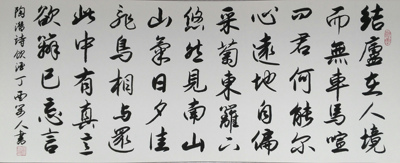 結廬在人境
而無車馬喧
問君何能爾
心遠地自偏
采菊東籬下
悠然見南山
山氣日夕佳
飛鳥相與還
此中有真意
欲辯已忘言
陶潛詩飲酒丁酉人書